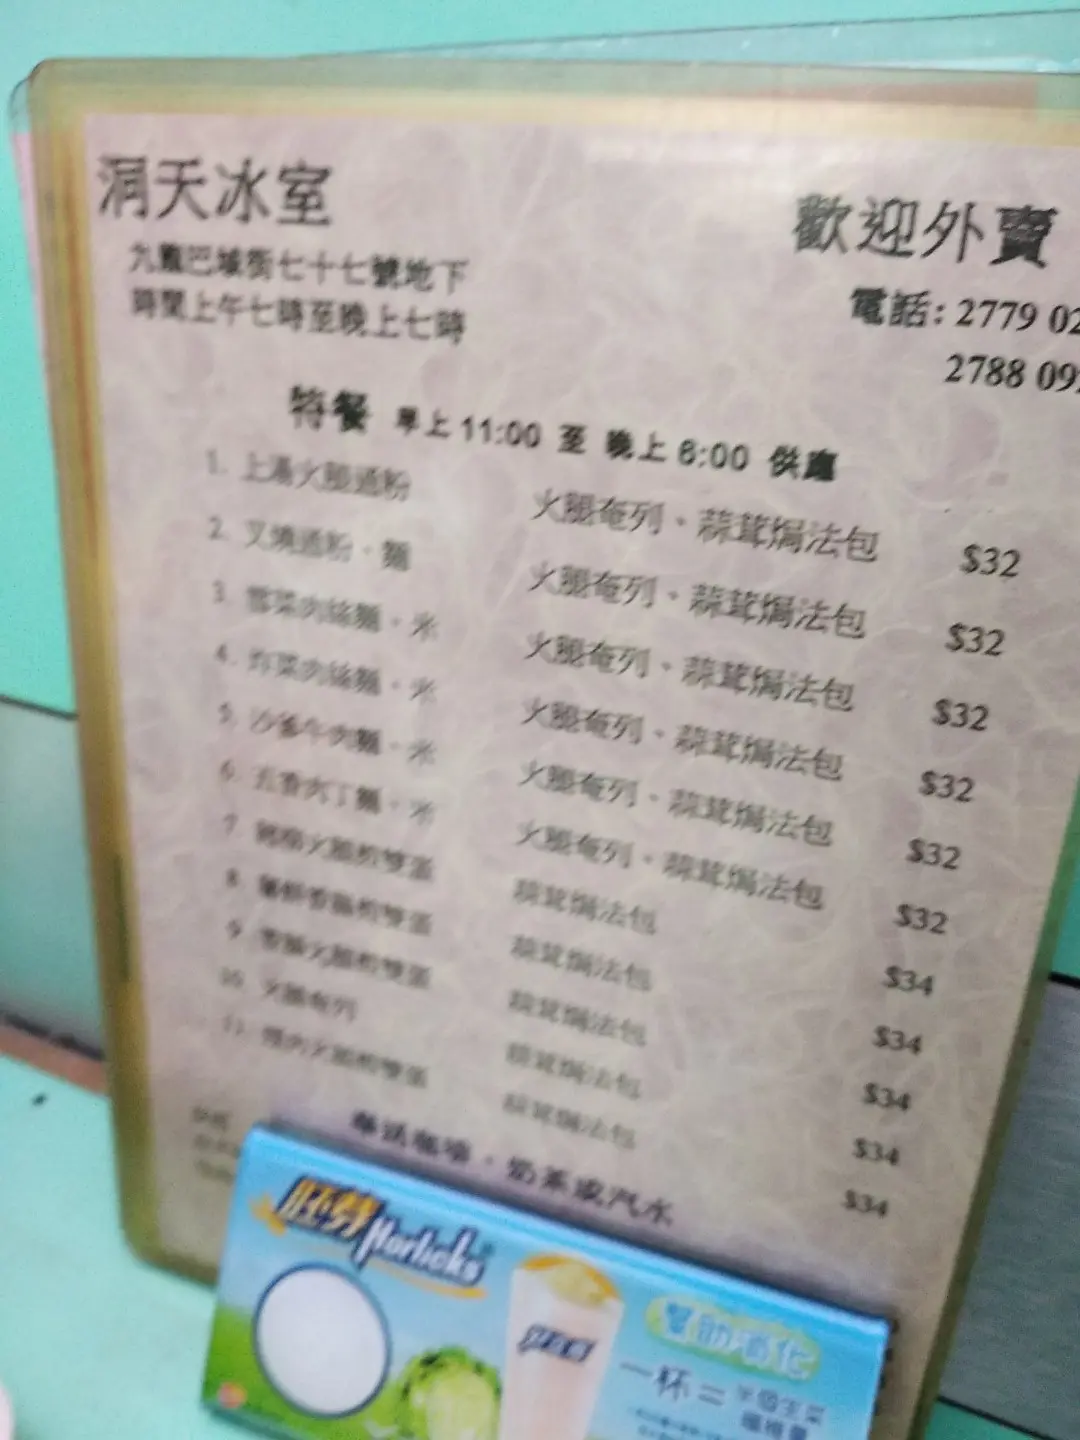 洞天冰室
九龍巴域街七十七號地下
時間上午七時至晚上七時
歡迎外賣
電話: 2779 02
2788 09
特餐 早上 11:00 至 晚上 6:00 供應
1. 上湯火腿通粉 火腿奄列、蒜茸焗法包 $32
2. 叉燒通粉、麵 火腿奄列、蒜茸焗法包 $32
3. 雪菜肉絲麵、米 火腿奄列、蒜茸焗法包 $32
4. 炸菜肉絲麵、米 火腿奄列、蒜茸焗法包 $32
5. 沙爹牛肉麵、米 火腿奄列、蒜茸焗法包 $32
6. 五香肉丁麵、米 火腿奄列、蒜茸焗法包 $32
7. 火腿煎雙蛋 蒜茸焗法包 $34
8. 薯餅香腸煎雙蛋 蒜茸焗法包 $34
9. 香腸火腿煎雙蛋 蒜茸焗法包 $34
10. 火腿奄列 蒜茸焗法包 $34
11. 火腿煎雙蛋 蒜茸焗法包 $34
奉送咖啡、奶茶或汽水
好立克 Horlicks
幫助消化
一杯=半個生菜
纖維量